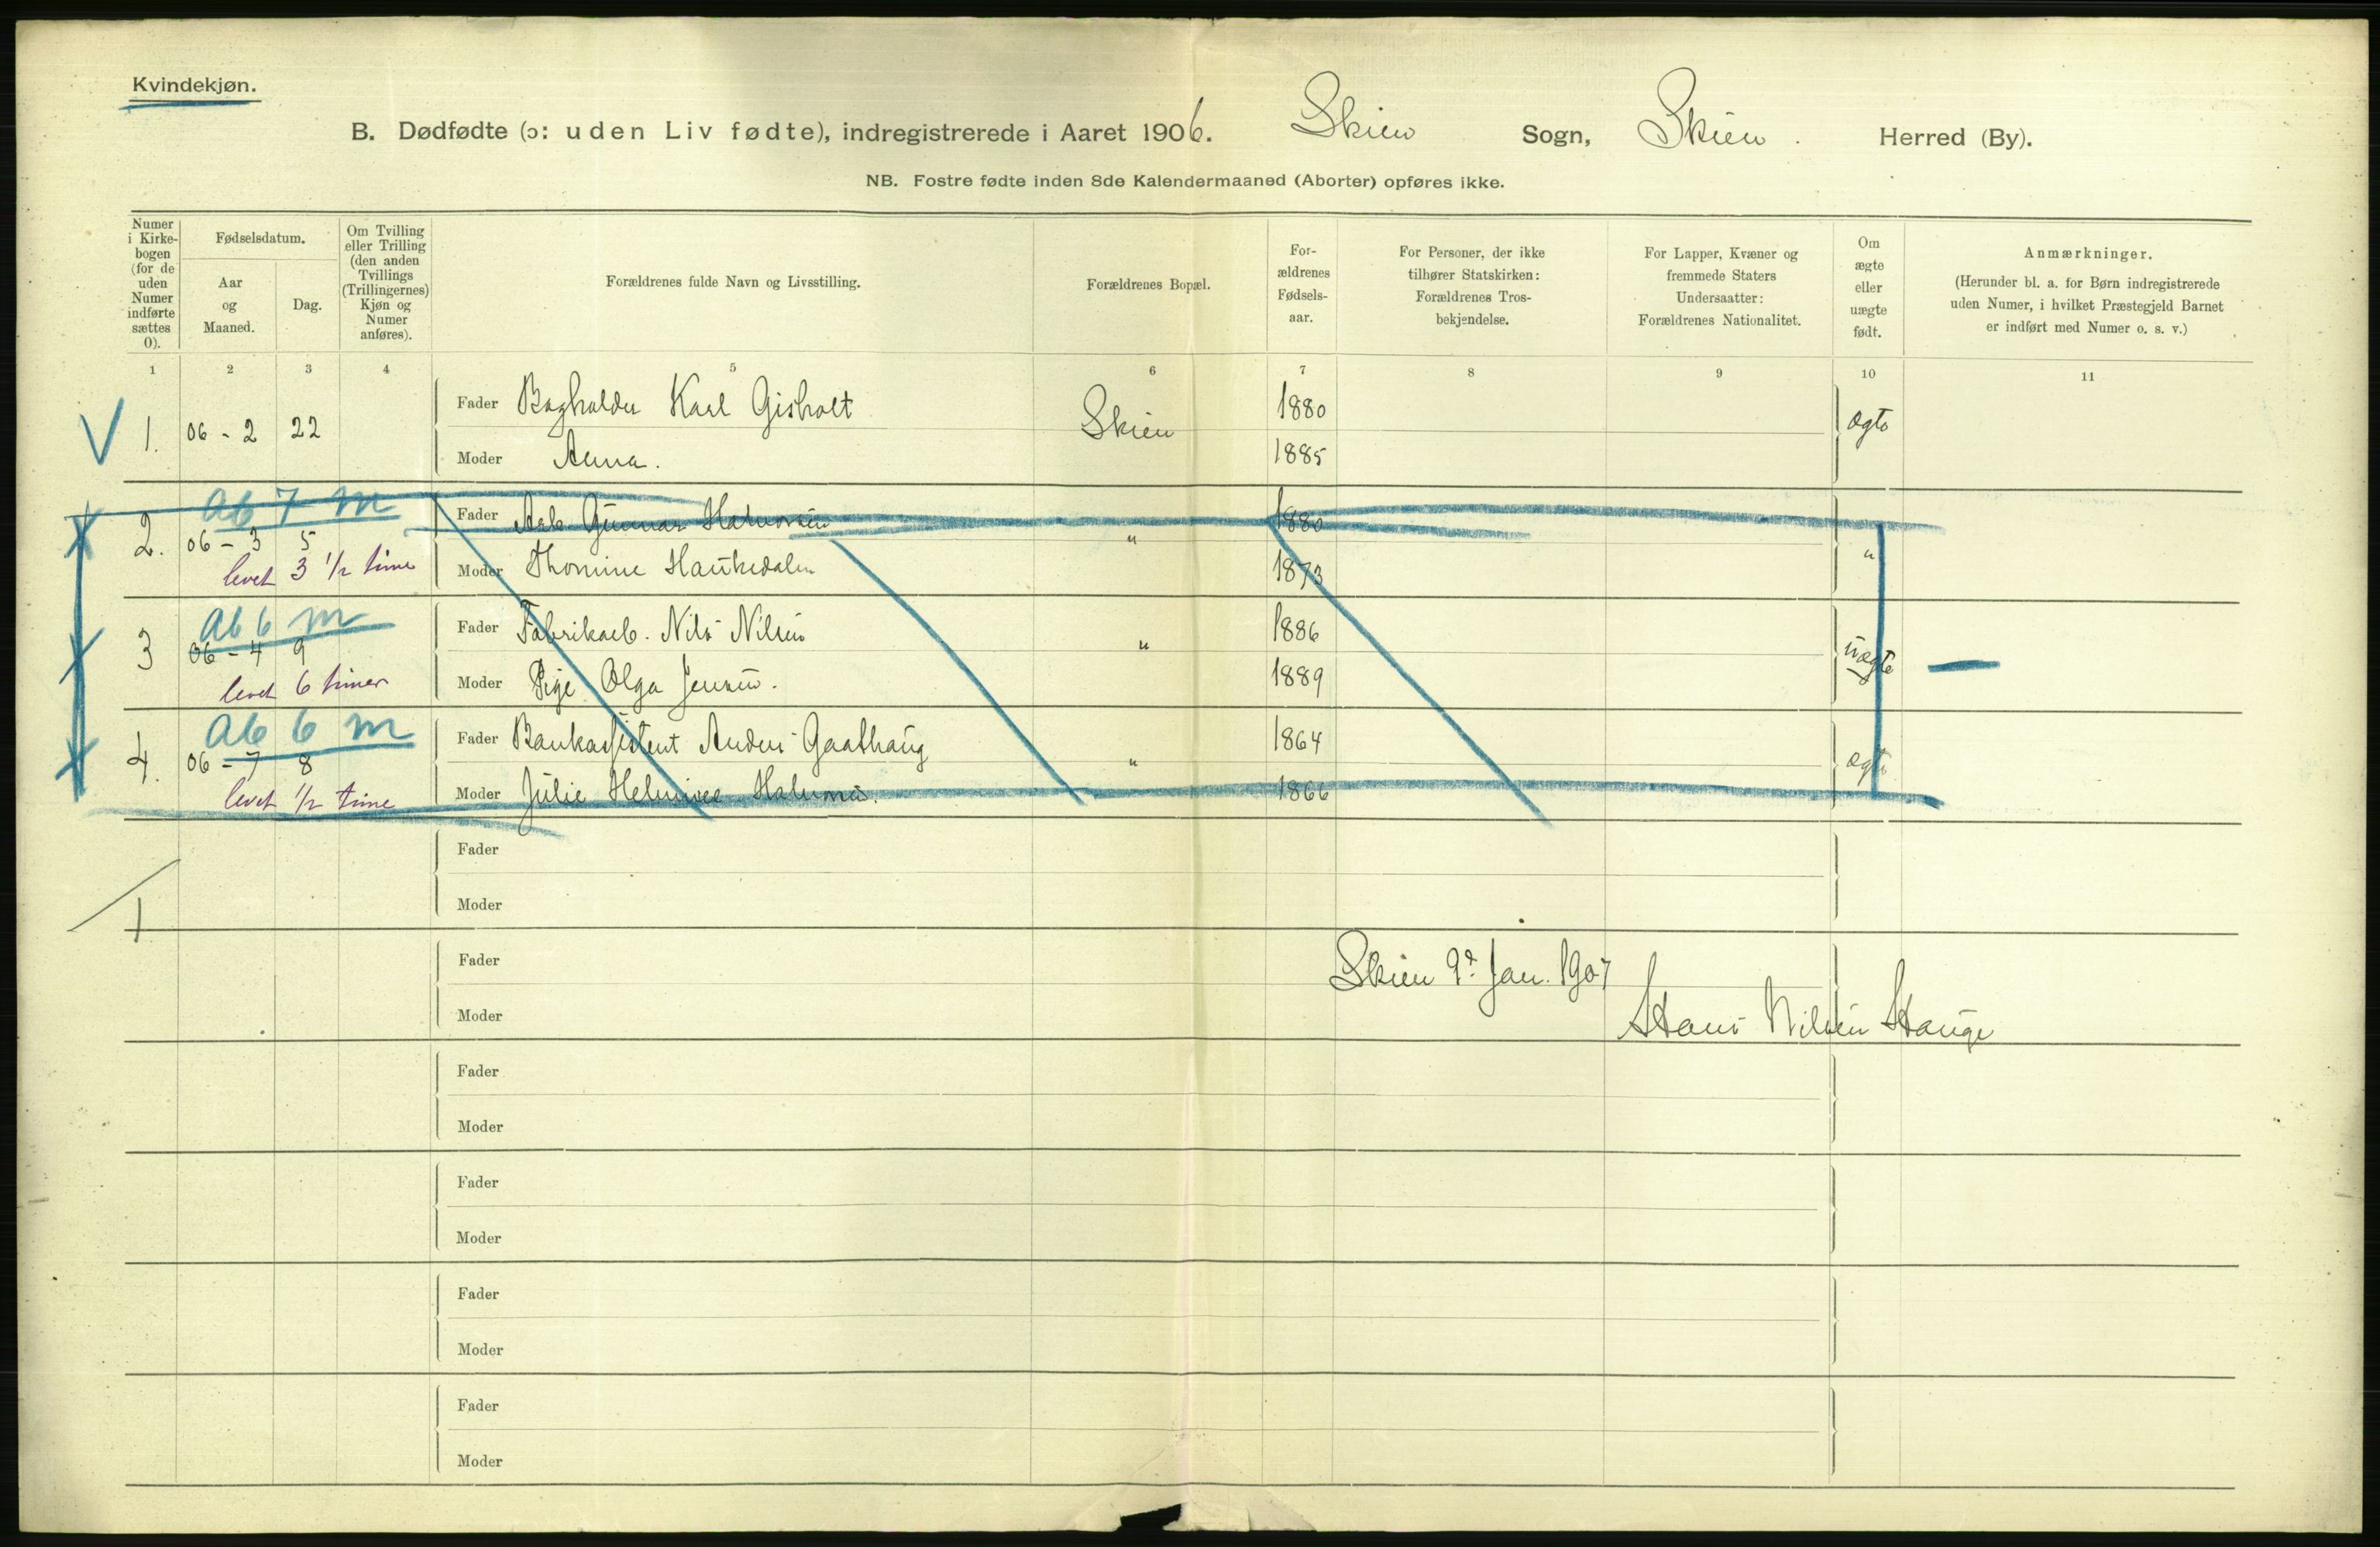 Kvindekjøn.
B. Dødfødte (ɔ: uden Liv fødte), indregistrerede i Aaret 1906. Skien Sogn, Skien. Herred (By).
NB. Fostre fødte inden 8de Kalendermaaned (Aborter) opføres ikke.
Numer i Kirkebogen (for de uden Numer indførte sættes 0).
Fødselsdatum.
Aar og Maaned.
Dag.
Om Tvilling eller Trilling (den anden Tvillings (Trillingernes) Kjøn og Numer anføres).
Forældrenes fulde Navn og Livsstilling.
Forældrenes Bopæl.
Forældrenes Fødselsaar.
For Personer, der ikke tilhører Statskirken: Forældrenes Trosbekjendelse.
For Lapper, Kvæner og fremmede Staters Undersaatter: Forældrenes Nationalitet.
Om ægte eller uægte født.
Anmærkninger.
(Herunder bl. a. for Børn indregistrerede uden Numer, i hvilket Præstegjeld Barnet er indført med Numer o. s. v.)
1 2 3 4 5 6 7 8 9 10 11
V 1. 06 - 2 22 Fader Bogholder Karl Gisholt Skien 1880 ægte
Moder Anna. 1885
Ab 7 m
2. 06 - 3 5 Fader Arb. Gunnar Halvorsen " 1880 "
levet 3 1/2 time Moder Thomine Haukedalen 1873
Ab 6 m
3 06 - 4 9 Fader Fabrikarb. Nils Nilsen " 1886 uægte —
levet 6 timer Moder Pige Olga Jensen. 1889
Ab 6 m
4. 06 - 7 8 Fader Bankassistent Anders Gaathaug " 1864 ægte
levet 1/2 time Moder Julie Helmine Halvorsen. 1866
Fader
1 Moder
Fader
Skien 9d. Jan. 1907
Moder
Hans Nilsen Hauge
Fader
Moder
Fader
Moder
Fader
Moder
Fader
Moder